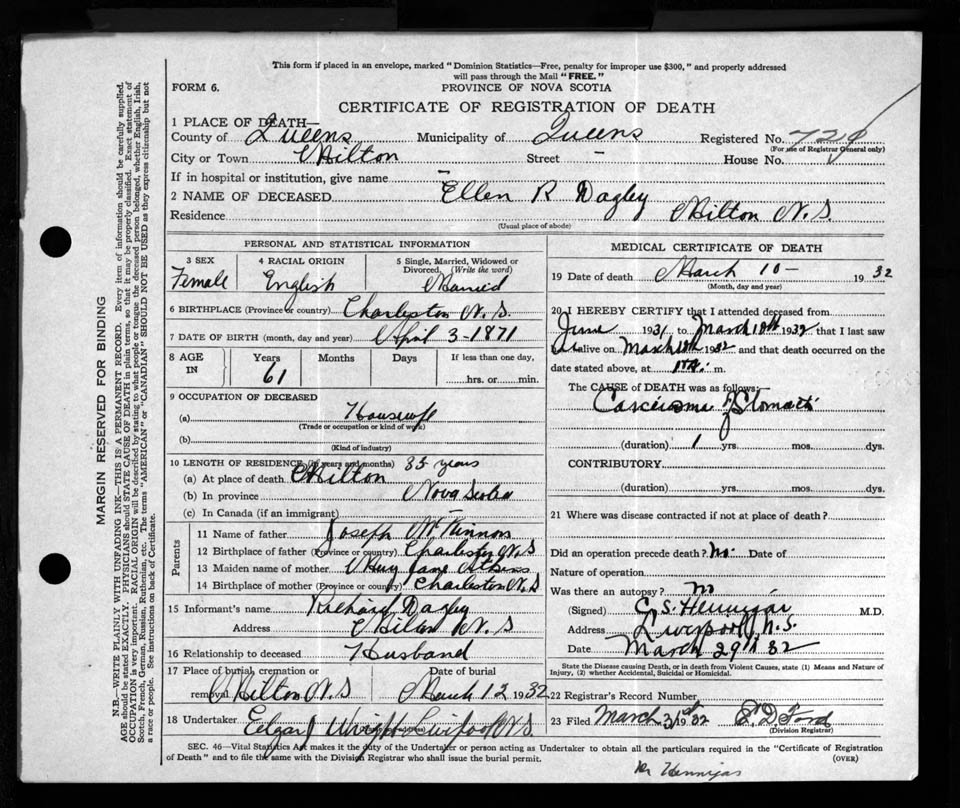 This form if placed in an envelope, marked "Dominion Statistics—Free, penalty for improper use $300," and properly addressed
will pass through the Mail "FREE."
FORM 6.
PROVINCE OF NOVA SCOTIA
CERTIFICATE OF REGISTRATION OF DEATH
1 PLACE OF DEATH—
County of Queens Municipality of Queens Registered No. 729
(For use of Registrar General only)
City or Town Milton Street – House No.
If in hospital or institution, give name –
2 NAME OF DECEASED Ellen R Dagley
Residence Milton N.S.
(Usual place of abode)
PERSONAL AND STATISTICAL INFORMATION
3 SEX 4 RACIAL ORIGIN 5 Single, Married, Widowed or Divorced. (Write the word)
Female English Married
6 BIRTHPLACE (Province or country) Charleston N.S.
7 DATE OF BIRTH (month, day and year) April 3-1871
8 AGE IN Years Months Days If less than one day,
61 hrs. or min.
9 OCCUPATION OF DECEASED
(a) Housewife
(Trade or occupation or kind of work)
(b)
(Kind of industry)
10 LENGTH OF RESIDENCE (in years and months) 35 years
(a) At place of death Milton
(b) In province Nova Scotia
(c) In Canada (if an immigrant) –
Parents
11 Name of father Joseph McKinnon
12 Birthplace of father (Province or country) Charleston N.S
13 Maiden name of mother Mary Jane Atkins
14 Birthplace of mother (Province or country) Charleston N.S
15 Informant's name Richard Dagley
Address Milton N.S
16 Relationship to deceased Husband
17 Place of burial, cremation or Date of burial
removal Milton N.S March 12 1932
18 Undertaker Edgar J Wright Liverpool N.S.
MEDICAL CERTIFICATE OF DEATH
19 Date of death March 10– 1932
(Month, day and year)
20 I HEREBY CERTIFY that I attended deceased from
June 1931 to March 10th 1932 that I last saw
alive on March 10th 1932 and that death occurred on the
date stated above, at m.
The CAUSE of DEATH was as follows:
Carcinoma of Stomach
(duration) 1 yrs. mos. dys.
CONTRIBUTORY
(duration) yrs. mos. dys.
21 Where was disease contracted if not at place of death?
Did an operation precede death? no. Date of
Nature of operation
Was there an autopsy? no
(Signed) C. S. Hennigar M.D.
Address Liverpool, N.S.
Date March 29th 32
State the Disease causing Death, or in death from Violent Causes, state (1) Means and Nature of
Injury, (2) whether Accidental, Suicidal or Homicidal.
22 Registrar's Record Number
23 Filed March 31st 1932 E. D. Ford
(Division Registrar)
SEC. 46—Vital Statistics Act makes it the duty of the Undertaker or person acting as Undertaker to obtain all the particulars required in the "Certificate of Registration
of Death" and to file the same with the Division Registrar who shall issue the burial permit. (OVER)
Dr Hennigar
MARGIN RESERVED FOR BINDING
N.B.—WRITE PLAINLY WITH UNFADING INK—THIS IS A PERMANENT RECORD. Every item of information should be carefully supplied.
AGE should be stated EXACTLY. PHYSICIANS should STATE CAUSE OF DEATH in plain terms, so that it may be properly classified. Exact statement of
OCCUPATION is very important. RACIAL ORIGIN will be described by stating to what people or tongue the deceased person belonged, whether English, Irish,
Scotch, French, German, Russian, Ruthenian, etc. The terms "AMERICAN" or "CANADIAN" SHOULD NOT BE USED as they express citizenship but not
a race or people. See instructions on back of Certificate.